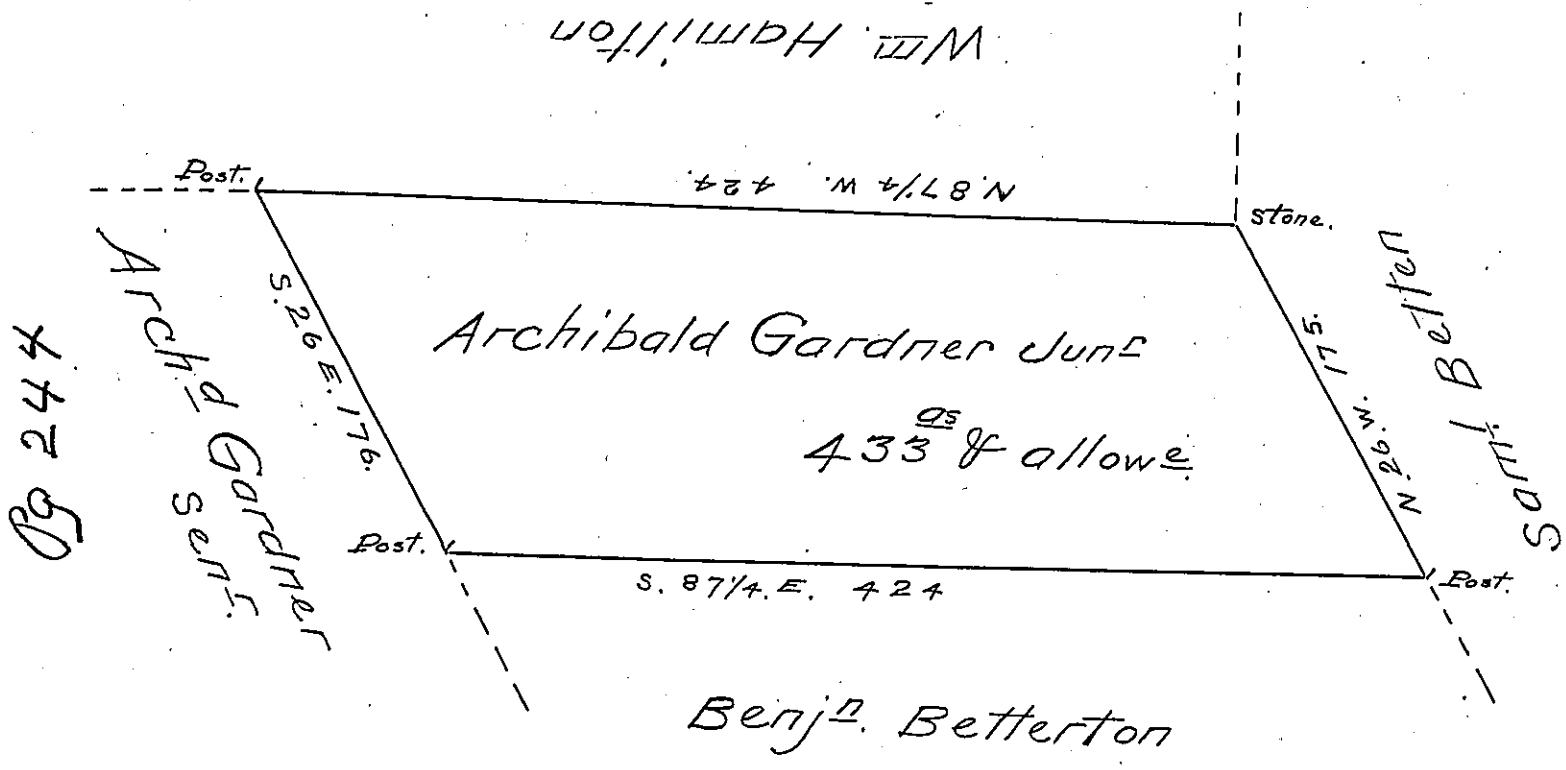 Wm. Hamilton
Post.
N. 87 1/4 W. 424.
Stone.
Pg 244
Archd Gardner
Senr.
S. 26 E. 176.
Archibald Gardner Junr
433as & allowe
N. 26. W. 175.
Saml Belten
Post.
S. 87 1/4. E. 424
Post.
Benjn. Betterton